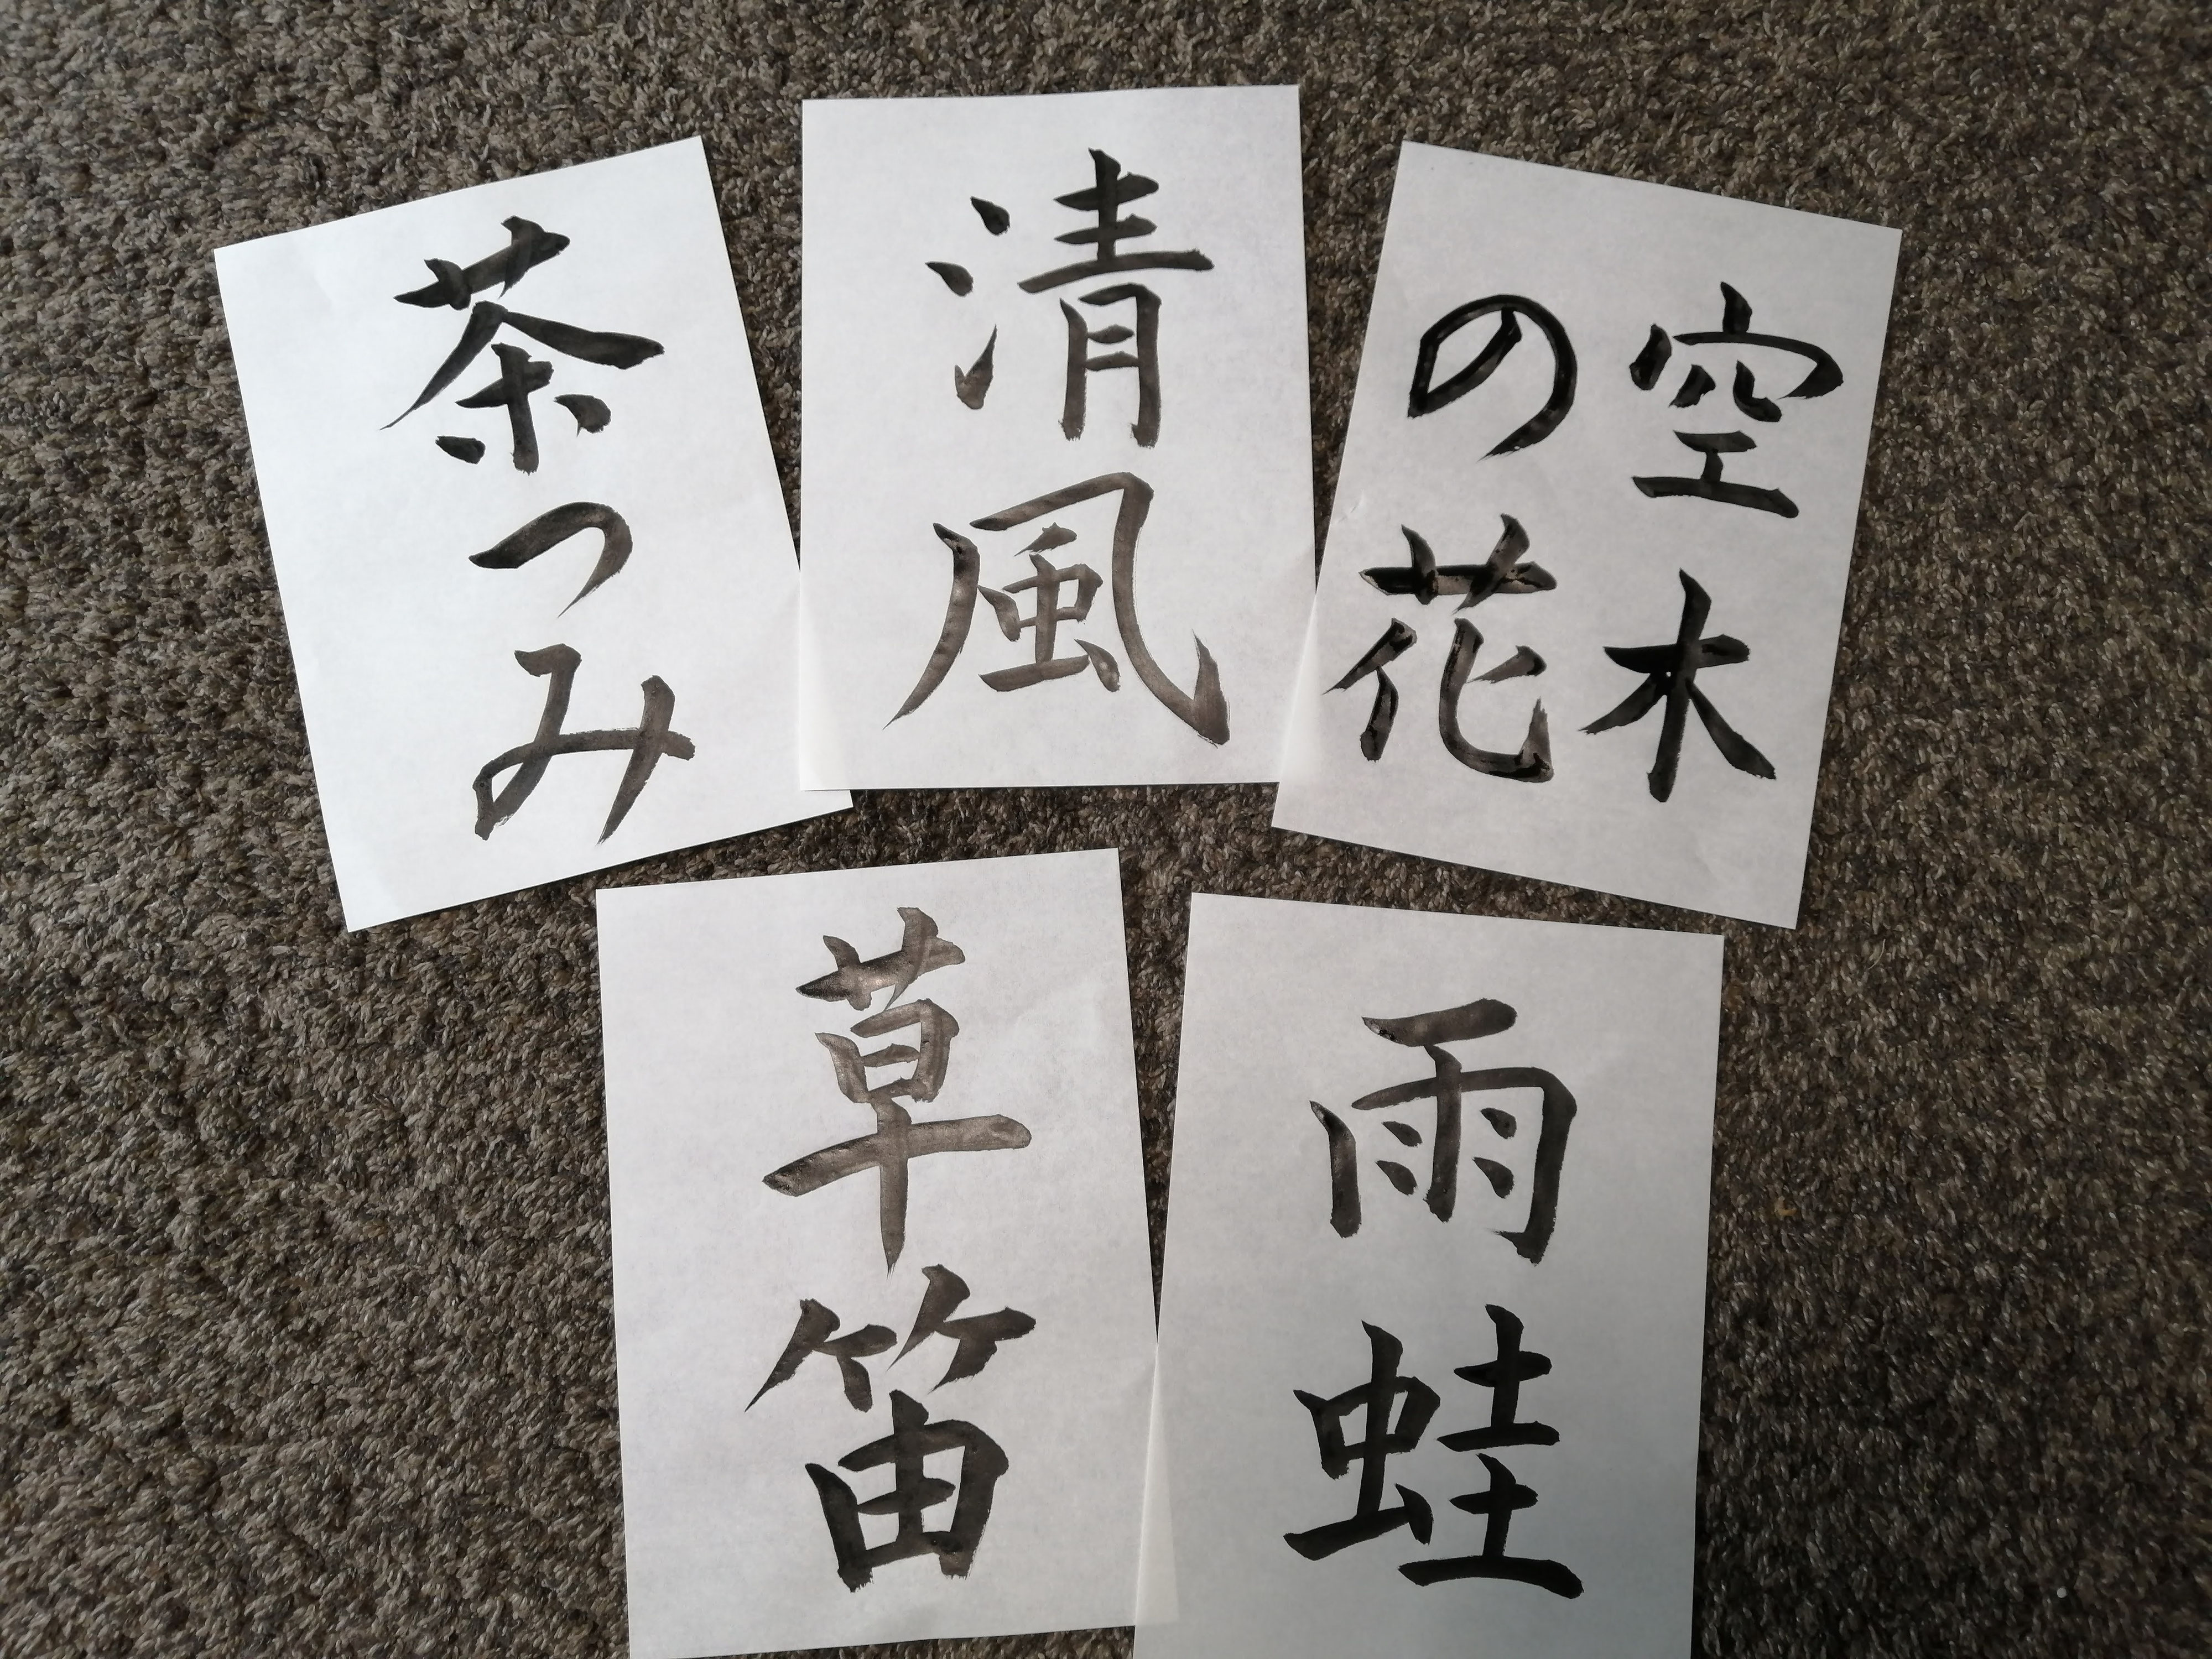 茶つみ
清風
空木
の花
草笛
雨蛙